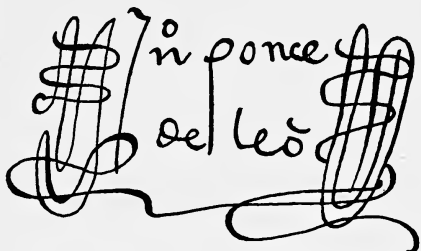 Jn̊ ponce
de leõ